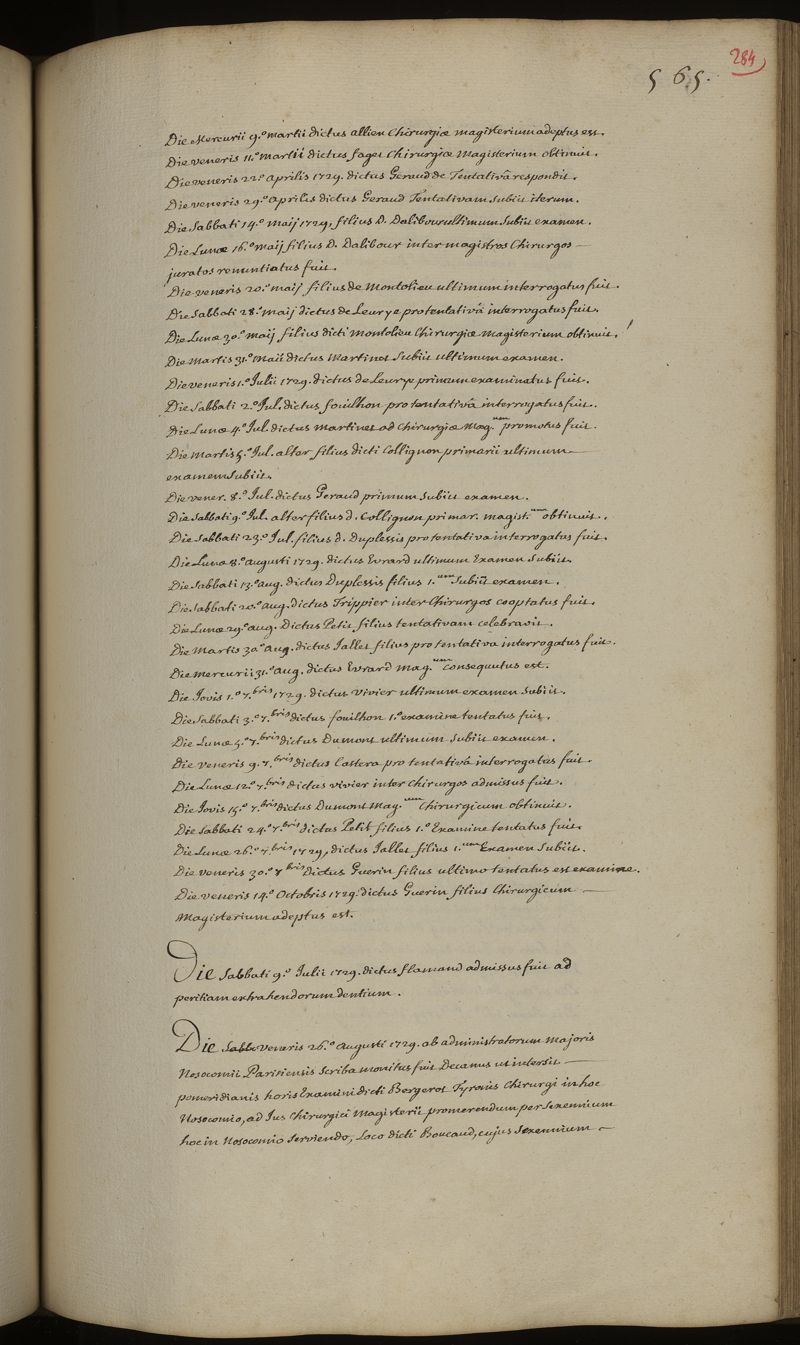 284
565.
Die Mercurii 9.º martii dictus allien Chirurgiæ magisterium adeptus est.
Die veneris 11.º Martii dictus faget Chirurgiæ Magisterium obtinuit.
Die veneris 22.º aprilis 1729. dictus Geraud de Tentativâ respondit.
Die veneris 29.º aprilis dictus Geraud Tentativam subiit iterum.
Die Sabbati 14.º maij 1729, filius D. Dalibour ultimum subiit examen.
Die Lunæ 16.º maij filius D. Dalibour inter magistros Chirurgos —
juratos renuntiatus fuit.
Die veneris 20.º maij filius de Montolieu ultimum interrogatus fuit.
Die Sabbati 28.º maij dictus de Leurye pro tentativâ interrogatus fuit.
Die Lunæ 30.º maij filius dicti Montolieu Chirurgiæ magisterium obtinuit.
Die Martis 31.º Maii dictus Martinet subiit ultimum examen.
Die veneris 1.º Julii 1729. dictus de Leurye primum examinatus fuit.
Die Sabbati 2.º Jul. dictus fouilhon pro tentativâ interrogatus fuit.
Die Lunæ 4.º Jul. dictus Martinet ad Chirurgiæ Mag.um promotus fuit.
Die Martis 5.º Jul. alter filius dicti Collignon primarii ultimum —
examen subiit.
Die vener. 8.º Jul. dictus Geraud primum subiit examen.
Die Sabbati 9.º Jul. alter filius d. Collignon primar. magist.um obtinuit.
Die Sabbati 23.º Jul. filius d. Duplessis pro tentativa interrogatus fuit.
Die Lunæ 8.º augusti 1729. dictus Evrard ultimum Examen subiit.
Die Sabbati 13.º aug. dictus Duplessis filius 1.um subiit examen.
Die Sabbati 20.º aug. dictus Trippier inter Chirurgos cooptatus fuit.
Die Lunæ 29.º aug. Dictus Petit filius tentativam celebravit.
Die Martis 30.º aug. dictus Jallet filius pro tentativa interrogatus fuit.
Die Mercurii 31.º aug. dictus Evrard Mag.um consequutus est.
Die Jovis 1.º 7.bris 1729. dictus vivier ultimum examen subiit.
Die Sabbati 3.º 7.bris dictus fouilhon 1.º examine tentatus fuit.
Die Lunæ 5.º 7.bris dictus Dumont ultimum subiit examen.
Die veneris 9. 7.bris dictus Castera pro tentativâ interrogatus fuit.
Die Lunæ 12.º 7.bris dictus vivier inter Chirurgos admissus fuit.
Die Jovis 15.º 7.bris dictus Dumont Mag.um Chirurgicum obtinuit.
Die Sabbati 24.º 7.bris dictus Petit filius 1.º Examine tentatus fuit.
Die Lunæ 26.º 7.bris 1729, dictus Jallet filius 1.um Examen subiit.
Die veneris 30.º 7bris Dictus Guerin filius ultimo tentatus est examine.
Die veneris 14.º Octobris 1729. dictus Guerin filius Chirurgicum —
Magisterium adeptus est.
Die Sabbati 9.º Julii 1729. dictus flamand admissus fuit ad
peritiam extrahendorum dentium.
Die Sabb. veneris 26.º augusti 1729. ab administratorum Majoris
Nosocomii Parisiensis Scriba monitus fuit Decanus ut intersit —
pomeridianis horis Examini dicti Bergerot Tyronis Chirurgi in hoc
Nosocomio, ad Jus Chirurgici Magisterii promerendum per sexennium
hoc in Nosocomio serviendo, Loco dicti Boucaud, cujus sexennium —